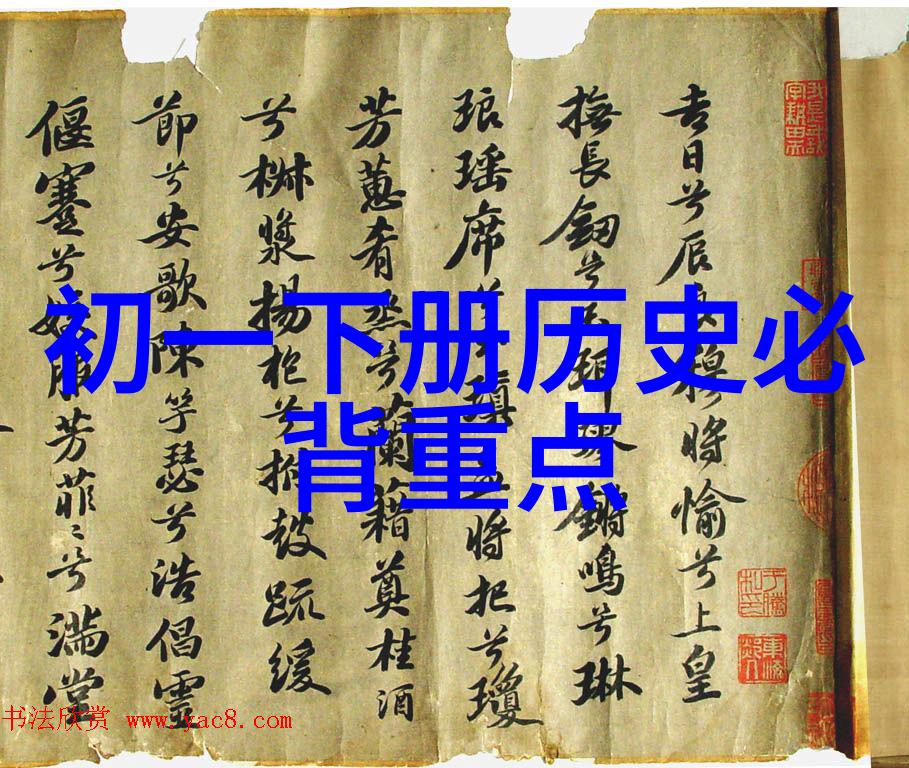 初一下册历史必
背重点
吉日兮辰良穆將愉兮上皇
撫長劒兮玉珥璆鏘鳴兮琳
琅瑶席兮玉瑱盍將把兮瓊
芳蕙肴烝兮蘭藉奠桂酒
兮椒漿揚枹兮拊鼓疏緩
節兮安歌陳竽瑟兮浩倡靈
偃蹇兮姣服芳菲〻兮滿堂
书法欣赏 www.yac8.com